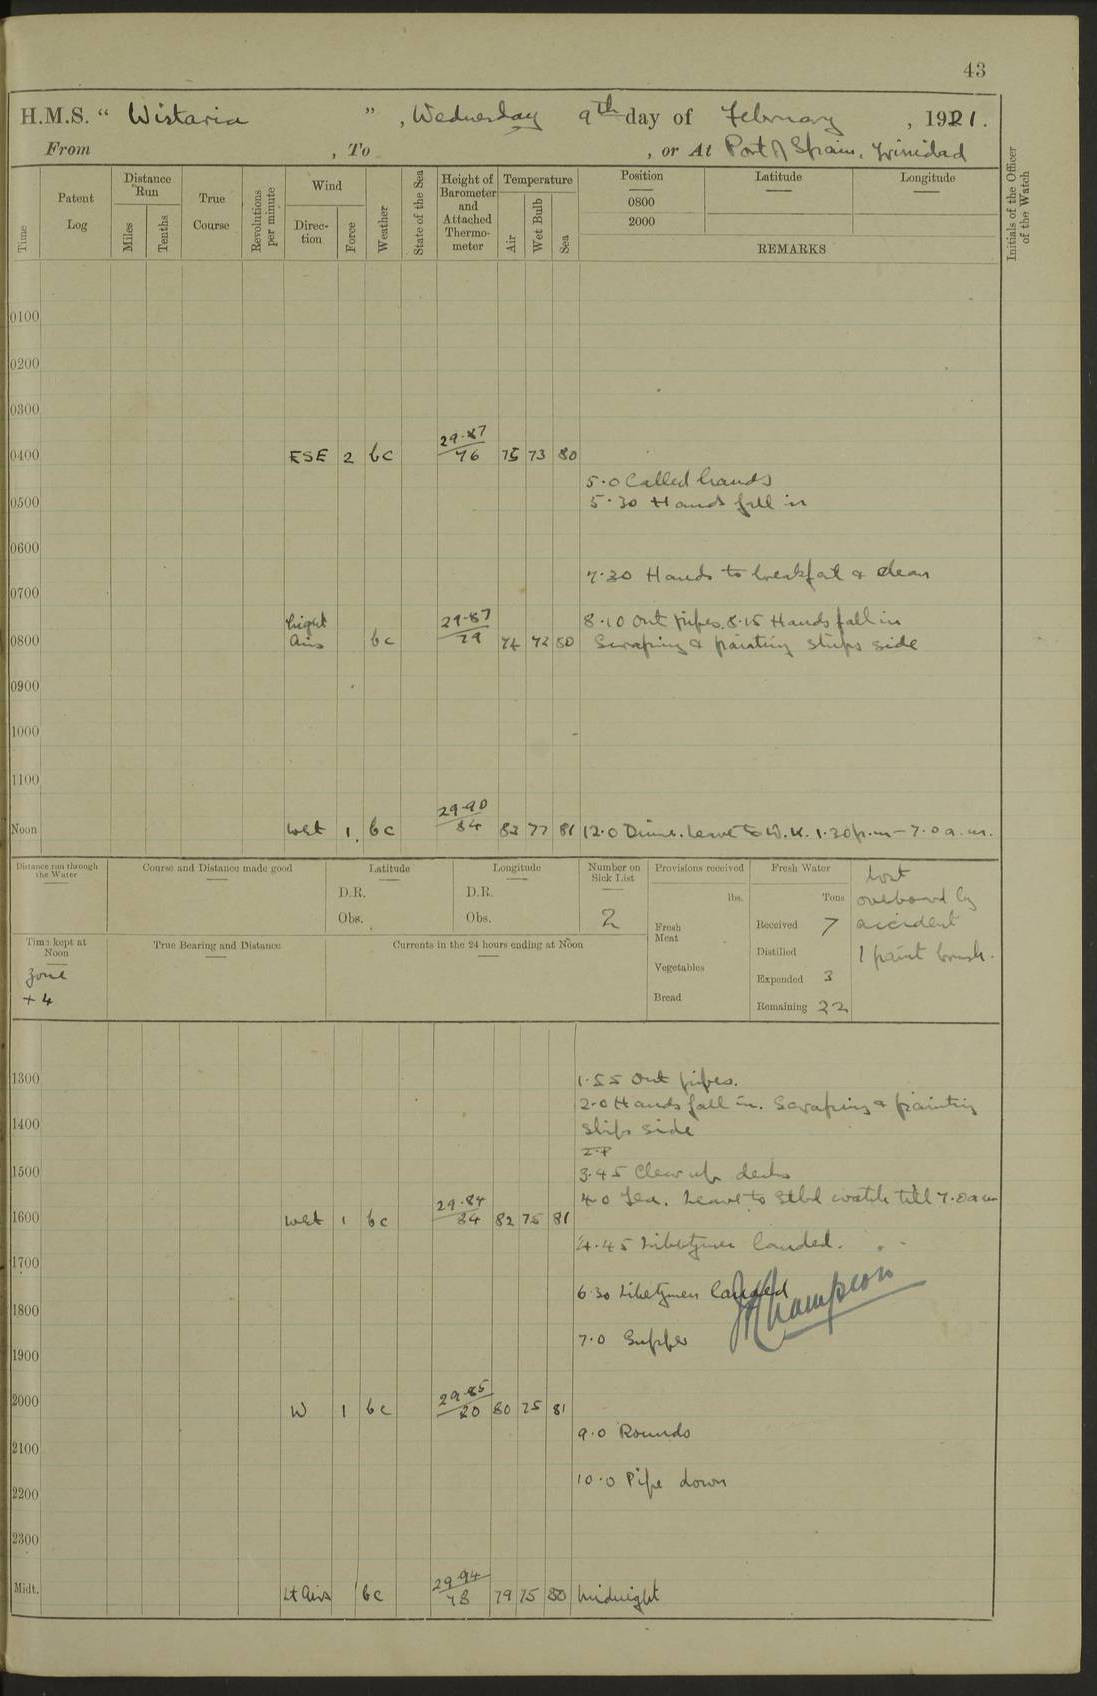 43
H.M.S. “ Wistaria ” , Wednesday 9th day of February , 1921.
From , To , or At Port of Spain, Trinidad
Time
Patent Log
Distance Run
Miles
Tenths
True Course
Revolutions per minute
Wind
Direction
Force
Weather
State of the Sea
Height of Barometer and Attached Thermometer
Temperature
Air
Wet Bulb
Sea
Position
0800
2000
Latitude
Longitude
REMARKS
Initials of the Officer of the Watch
0100
0200
0300
0400 ESE 2 bc 29.87/76 75 73 80
5.0 Called hands
0500 5.30 Hands fall in
0600
7.30 Hands to breakfat & clean
0700
8.10 Out pipes. 8.15 Hands fall in
0800 Light Airs bc 29.87/79 74 72 80 Scraping & painting ships side
0900
1000
1100
Noon West 1 bc 29.90/84 83 77 81 12.0 Dinner. Leave to W. K. 1.30 p.m – 7.0 a.m.
Distance run through the Water
Course and Distance made good
Latitude
D.R.
Obs.
Longitude
D.R.
Obs.
Number on Sick List
2
Provisions received
lbs.
Fresh Meat
Vegetables
Bread
Fresh Water
Tons
Received 7
Distilled
Expended 3
Remaining 22
Lost
overboard by
accident
1 paint brush.
Time kept at Noon
Zone
+ 4
True Bearing and Distance
Currents in the 24 hours ending at Noon
1300 1.55 Out pipes.
2.0 Hands fall in. Scraping & painting
1400 ships side
1500 3.45 Clear up decks
4.0 Tea. Leave to Stbd watch till 7.0 a m
1600 West 1 bc 29.84/84 82 75 81
4.45 Libertymen landed.
1700
6.30 Libertymen landed
JChampion
1800
7.0 Supper
1900
2000 W 1 bc 29.85/80 80 75 81
9.0 Rounds
2100
10.0 Pipe down
2200
2300
Midt. Lt Airs bc 29.94/78 79 75 80 Midnight